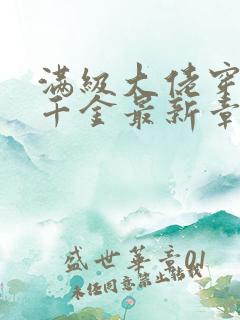 满级大佬穿
千金最新章
盛世华章01
未经同意禁止转载